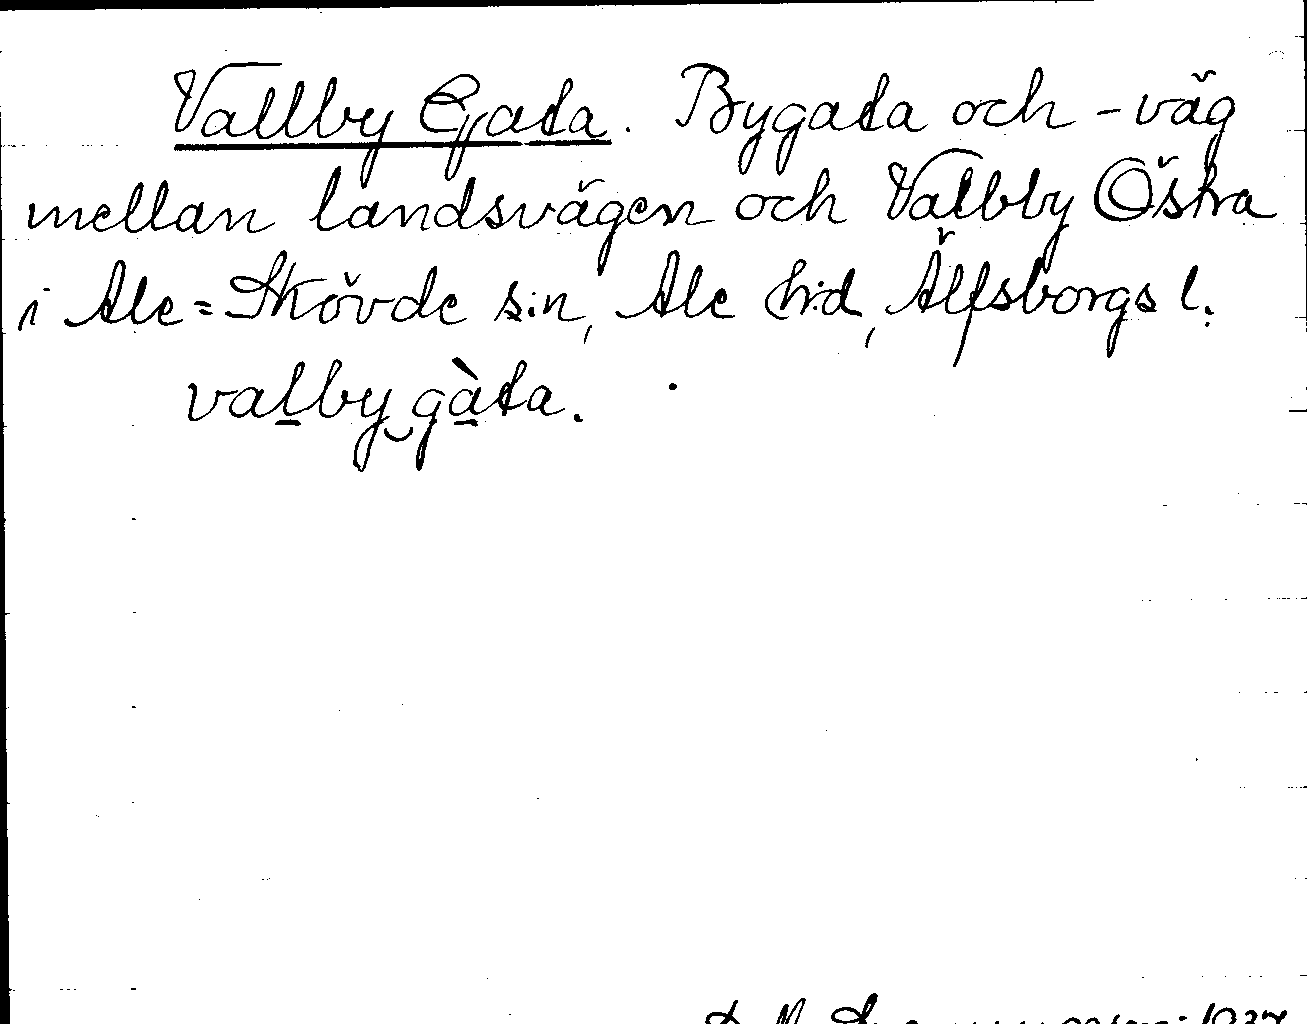 Vallby Gata. Bygata och -väg
mellan landsvägen och Vallby Östra
i Ale=Skövde s:n, Ale h:d, Älfsborgs l.
valby gàta.